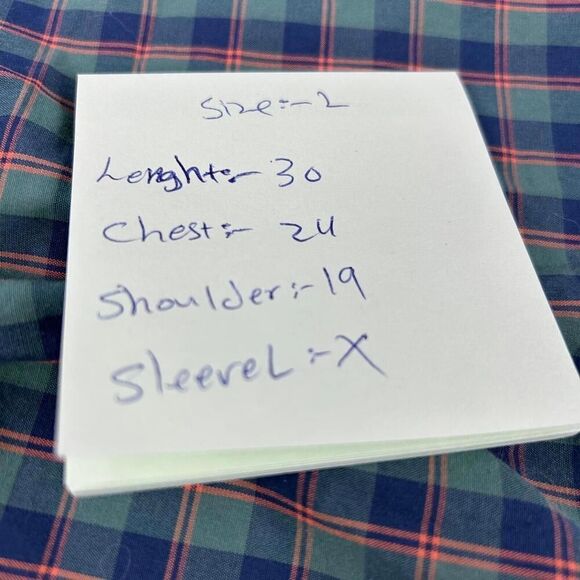 Size:- L
Lenght:- 30
Chest:- 24
Shoulder:- 19
SleeveL:- X